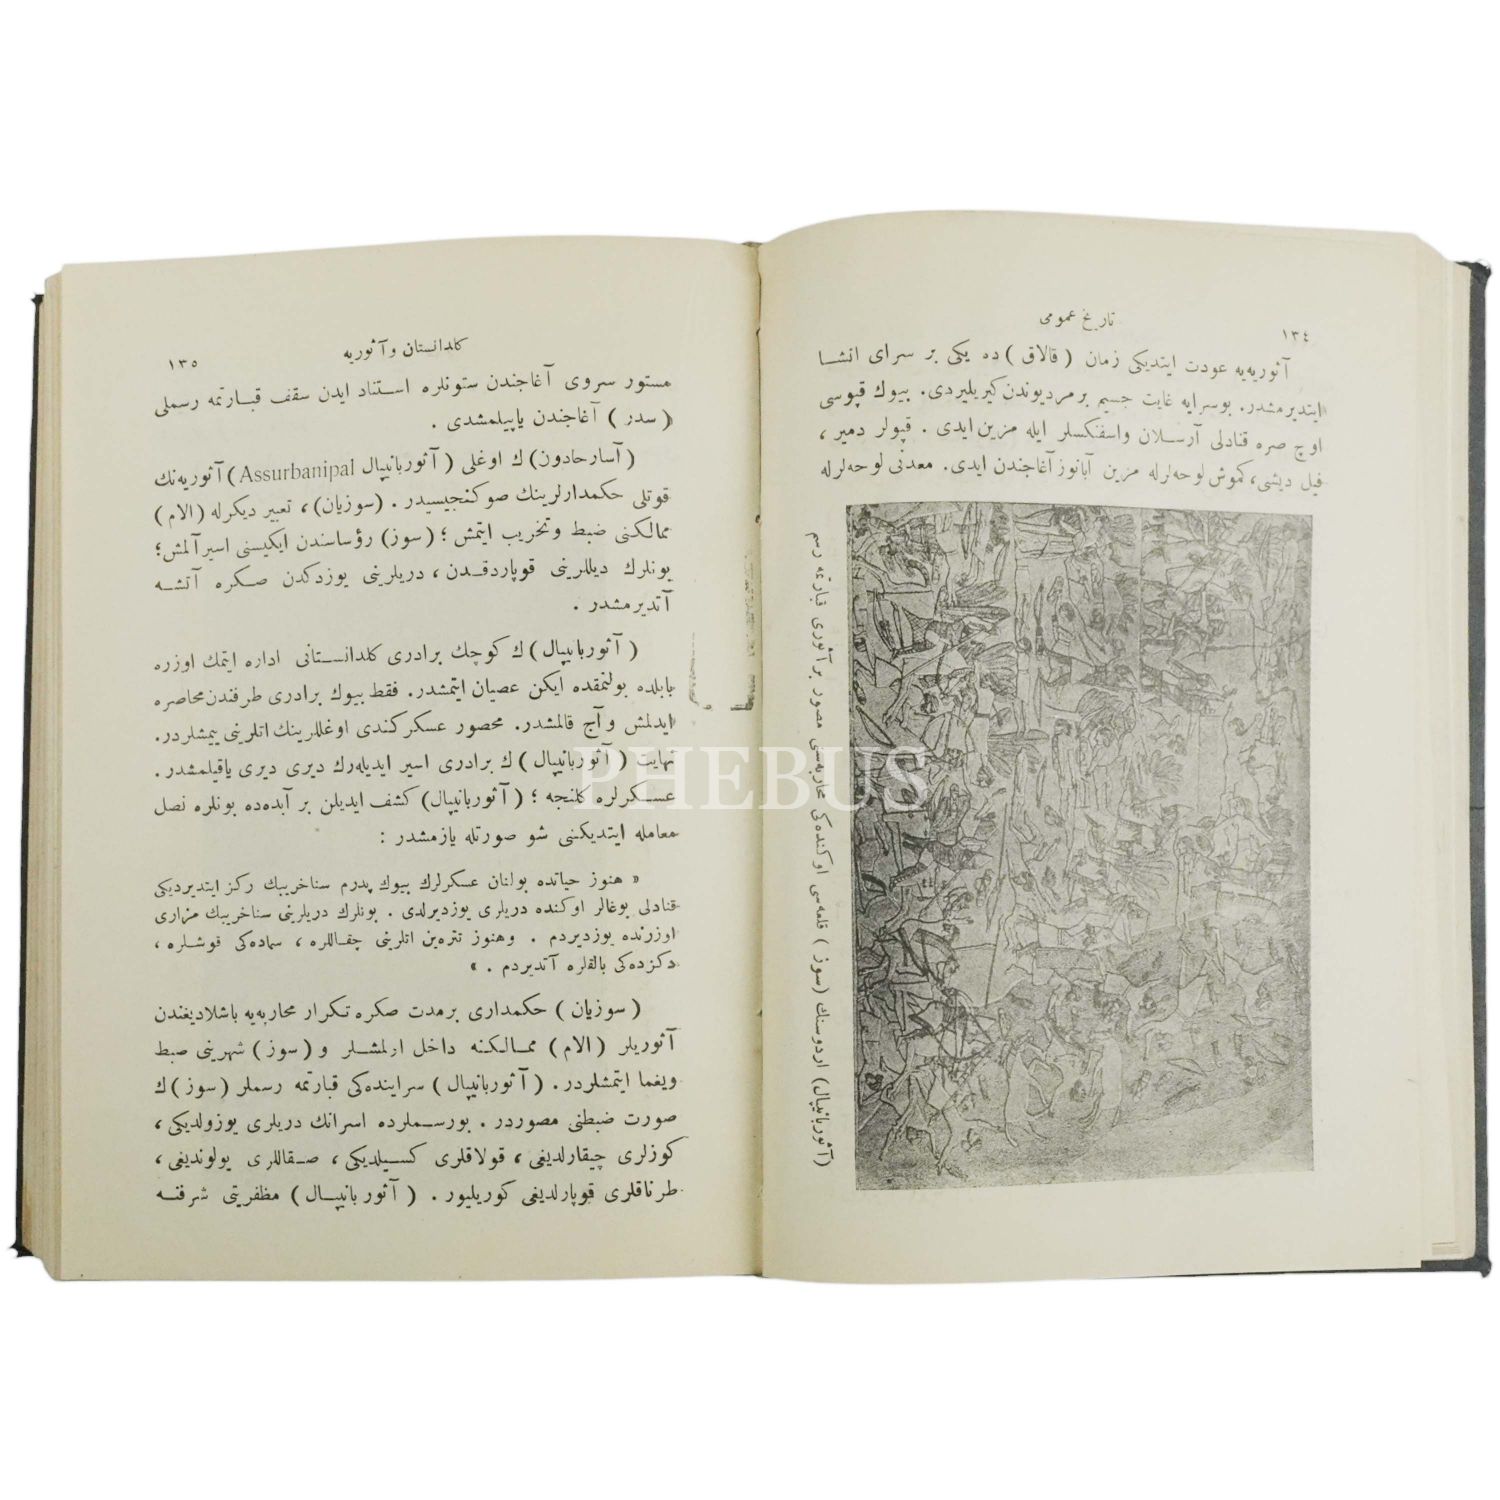 ١٣٤
تاریخ عمومی
آثوریه‌یه عودت ایتدیکی زمان ( قالاق ) ده یکی بر سرای انشا
ایتدیرمشدر. بوسرایه غایت جسیم برمردیوندن کیریلیردی. بیوك قپوسی
اوچ صره قنادلی آرسلان واسفنکسلر ایله مزین ایدی . قپولر دمیر ،
فیل دیشی، کموش لوحه‌لرله مزین آبانوز آغاجندن ایدی. معدنی لوحه‌لرله
(آثوربانیپال) اردوسنك (سوز ) قلعه‌سی اوکنده‌کی محاربه‌سی مصور بر آثوری قبارتمه رسم
کلدانستان و آثوریه
١٣٥
مستور سروی آغاجندن ستونلره استناد ایدن سقف قبارتمه رسملی
( سدر ) آغاجندن یاپیلمشدی .
(آسارحادون) ك اوغلی ( آثوربانیپال Assurbanipal ) آثوریه‌نك
قوتلی حکمدارلرینك صوکنجیسیدر . (سوزیان) ، تعبیر دیکرله (الام)
ممالکنی ضبط وتخریب ایتمش ؛ (سوز) رؤساسندن ایکیسنی اسیر آلمش؛
بونلرك دیللرینی قوپاردقدن ، دریلرینی یوزدکدن صکره آتشه
آتدیرمشدر .
( آثوربانیپال ) ك کوچك برادری کلدانستانی اداره ایتمك اوزره
بابلده بولنمقده ایکن عصیان ایتمشدر. فقط بیوك برادری طرفندن محاصره
ایدلمش و آچ قالمشدر. محصور عسکر کندی اوغللرینك اتلرینی ییمشلردر.
نهایت ( آثوربانیپال ) ك برادری اسیر ایدیله‌رك دیری دیری یاقیلمشدر.
عسکرلره کلنجه ؛ ( آثوربانیپال) کشف ایدیلن بر آبده‌ده بونلره نصل
معامله ایتدیکنی شو صورتله یازمشدر :
« هنوز حیاتده بولنان عسکرلرك بیوك پدرم سناخریبك رکز ایتدیردیکی
قنادلی بوغالر اوکنده دریلری یوزدیرلدی . بونلرك دریلرینی سناخریبك مزاری
اوزرنده یوزدیردم . وهنوز تتره‌ین اتلرینی چقاللره ، سماده‌کی قوشلره ،
دکزده‌کی بالقلره آتدیردم . »
( سوزیان ) حکمداری برمدت صکره تکرار محاربه‌یه باشلادیغندن
آثوریلر (الام) ممالکنه داخل اولمشلر و ( سوز ) شهرینی ضبط
ویغما ایتمشلردر . ( آثوربانیپال ) سراینده‌کی قبارتمه رسملر ( سوز ) ك
صورت ضبطنی مصوردر . بورسملرده اسرانك دریلری یوزولدیکی ،
کوزلری چیقارلدیغی ، قولاقلری کسیلدیکی ، صقاللری یولوندیغی ،
طرناقلری قوپارلدیغی کوریلیور . ( آثوربانیپال ) مظفریتی شرفنه
PHEBUS